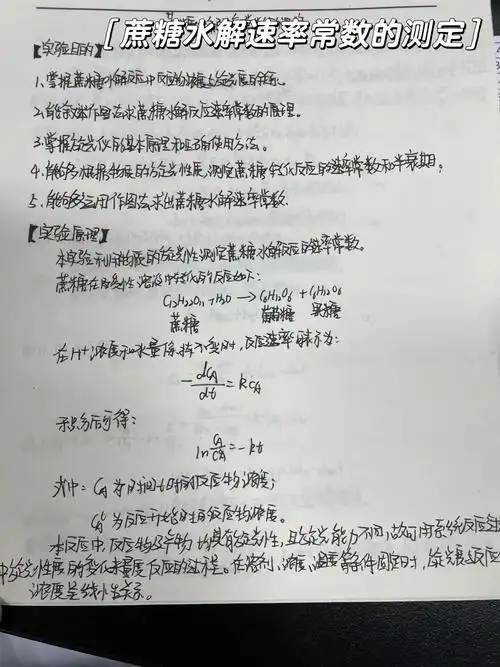 [蔗糖水解速率常数的测定]
【实验目的】
1、掌握蔗糖水解反应中反应物浓度与旋光度的关系。
2、能叙述作图法求蔗糖水解反应速率常数的原理。
3、掌握旋光仪的基本原理和正确使用方法。
4、能够根据物质的旋光性质,测定蔗糖转化反应的速率常数和半衰期;
5、能够运用作图法求出蔗糖水解速率常数.
【实验原理】
本实验利用物质的旋光性测定蔗糖水解反应的速率常数。
蔗糖在酸性溶液中转化的反应如下:
C12H22O11+H2O → C6H12O6 + C6H12O6
蔗糖 葡萄糖 果糖
在H+浓度和水量保持不变时,反应速率表示为:
-dCA/dt = kCA
积分后可得:
ln CA/C°A = -kt
式中: CA为时间t时的反应物浓度;
C°A为反应开始时的反应物浓度。
本反应中,反应物及产物均具有旋光性,且旋光能力不同,故可用系统反应过
中旋光性度的变化来量度反应的过程。在溶剂、浓度、温度等条件固定时,旋光度与反应
浓度呈线性关系。